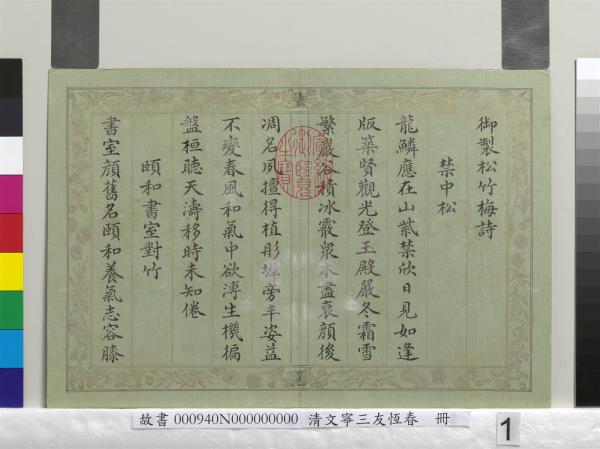 御製松竹梅詩
禁中松
龍鱗應在山紫禁欣日見如逢
版築賢觀光登玉殿嚴冬霜雪
繁巖谷積冰霰衆木盡衰顏後
凋名夙擅得植彤墀旁丰姿益
不變春風和氣中欲溥生機徧
盤桓聽天濤移時未知倦
頤和書室對竹
書室顏舊名頤和養氣志容膝
故書 000940N000000000 清文寧三友恆春 冊
1